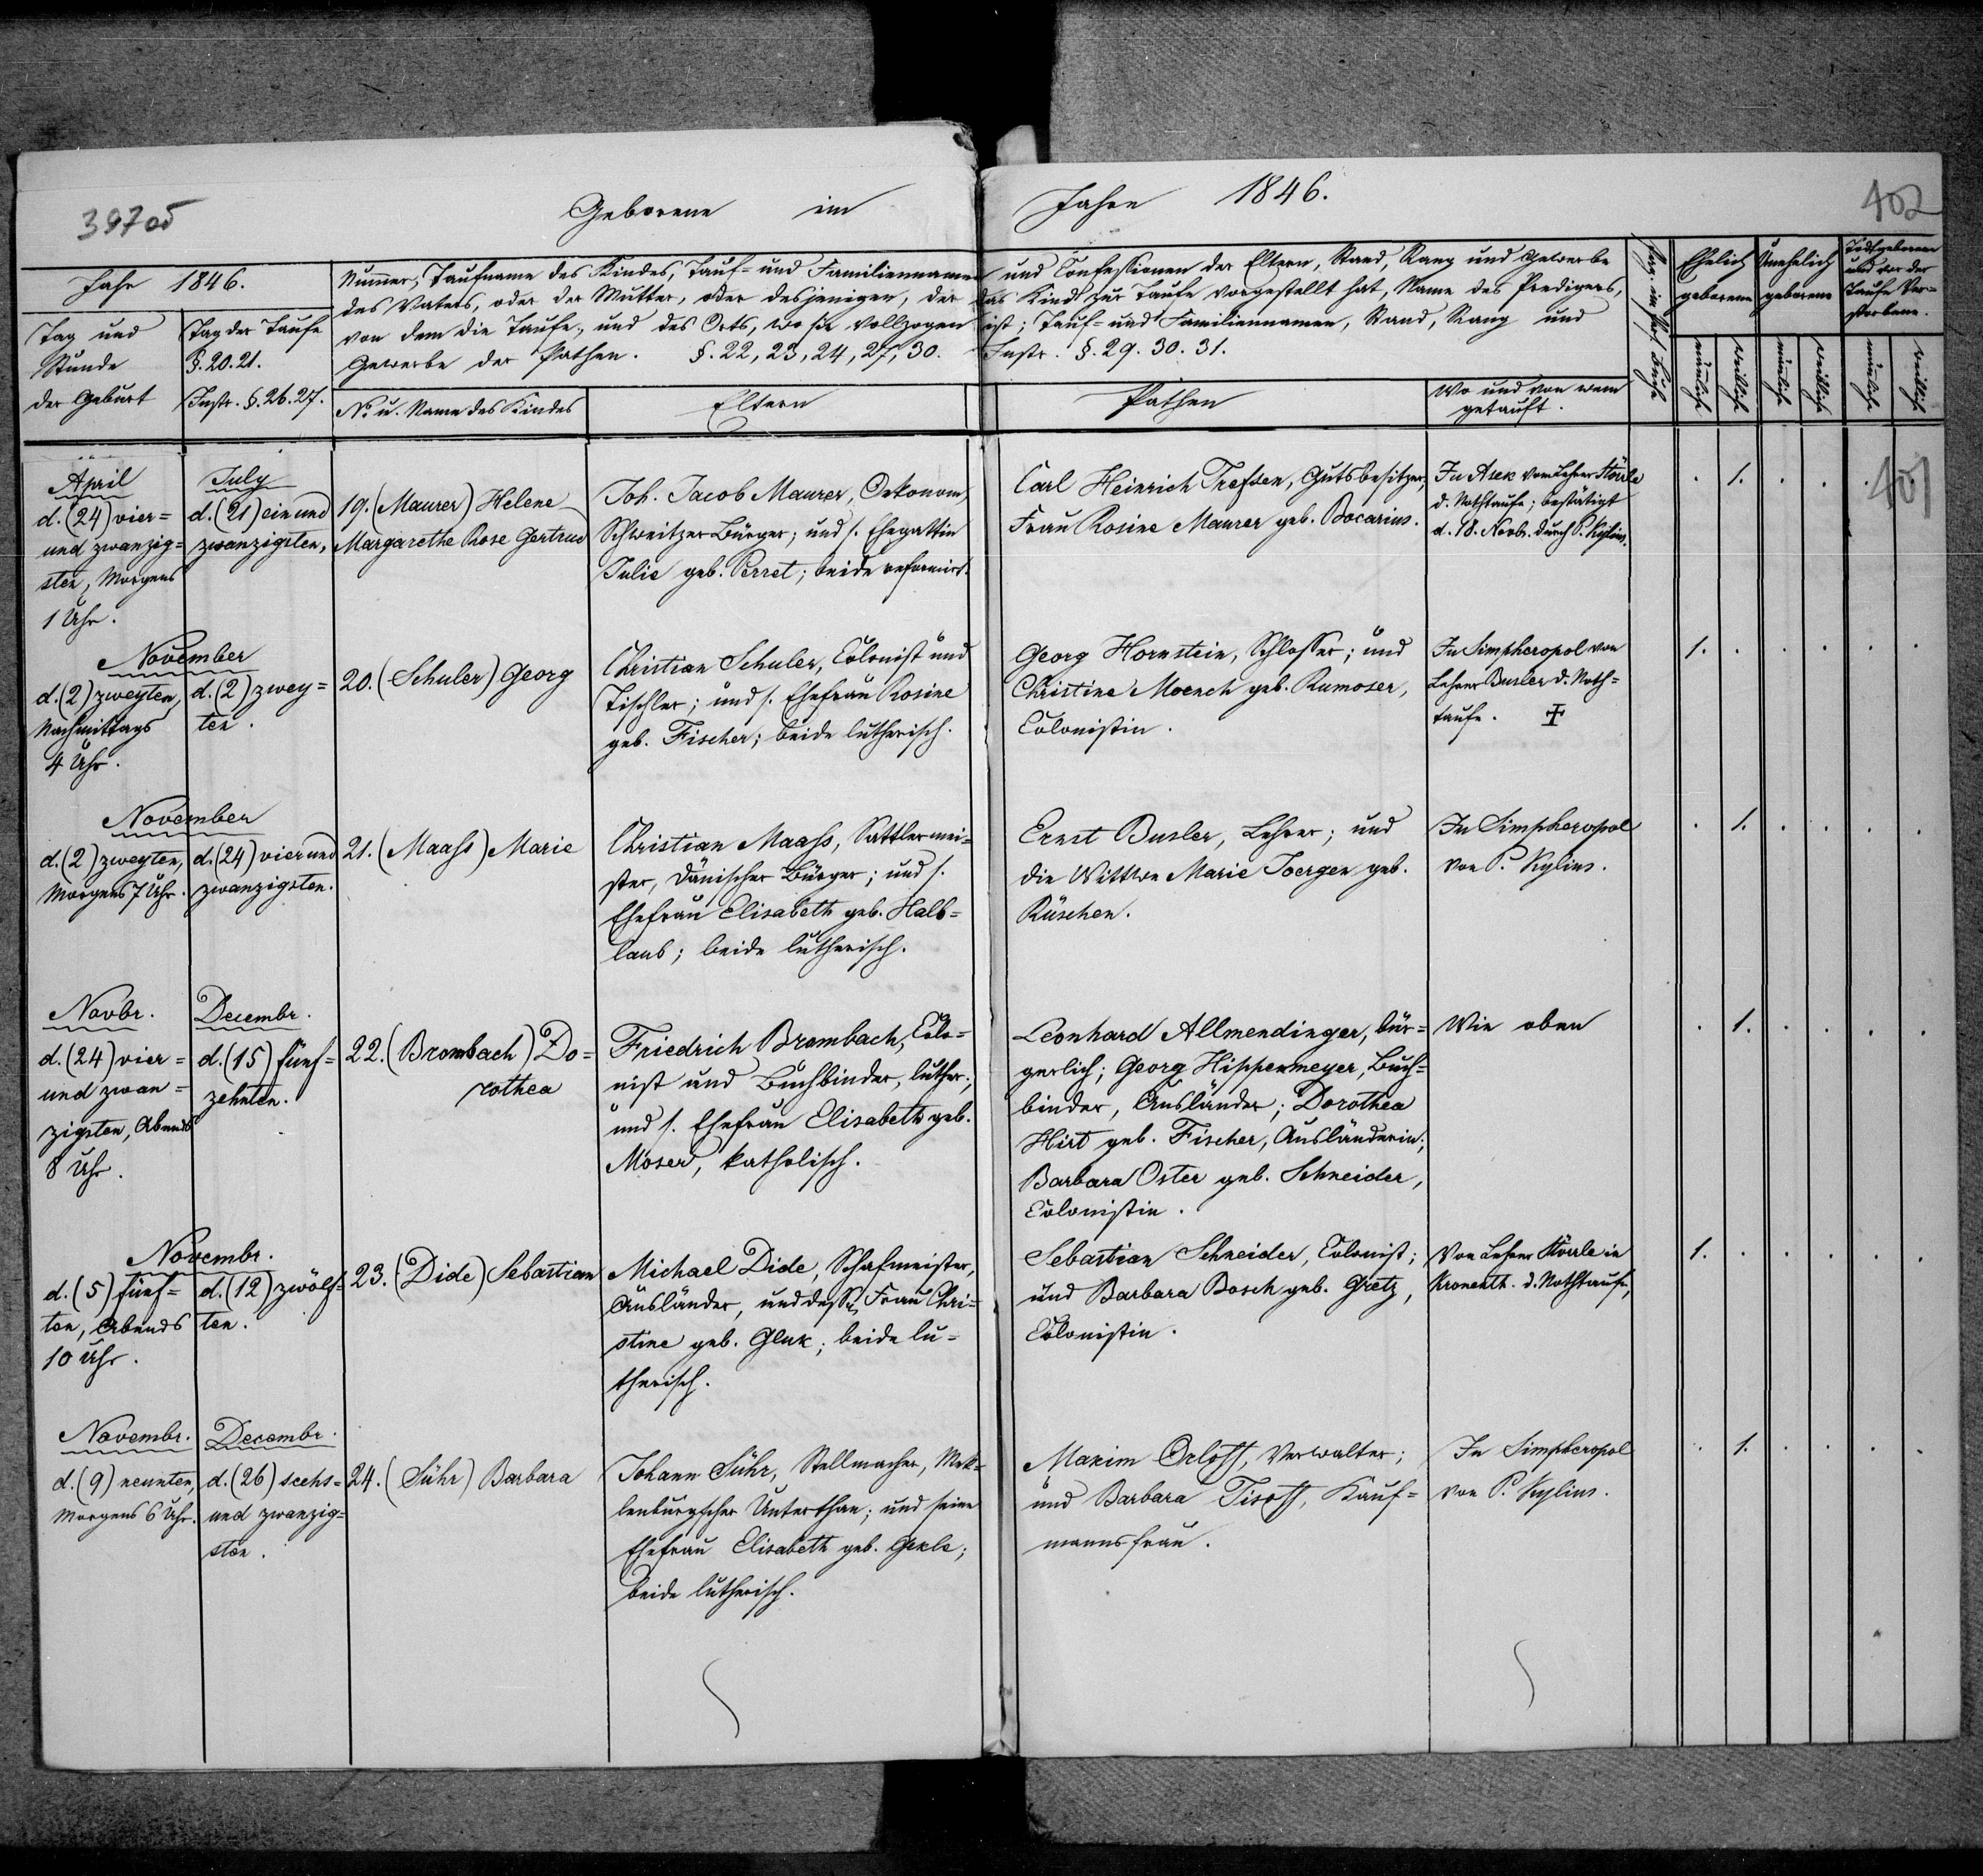 39705
Geborene im Jahre 1846.
402
Jahr 1846.
Tag und
Stunde
der Geburt
Tag der Taufe
§. 20. 21.
Instr. §. 26. 27.
Numer, Taufname des Kindes, Tauf- und Familiennamen und Confessionen der Eltern, Stand, Rang und Gewerbe
des Vaters, oder der Mutter, oder desjenigen, der das Kind zur Taufe vorgestellt hat, Name des Predigers,
von dem die Taufe, und des Orts, wo sie vollzogen ist; Tauf- und Familiennamen, Stand, Rang und
Gewerbe der Pathen. §. 22, 23, 24, 27, 30. Instr. §. 29. 30. 31.
No. u. Name des Kindes
Eltern
Pathen
Wo und von wem
getauft.
Ehelich
geborene
Unehelich
geborene
Todtgeborene
und vor der
Taufe Ver-
storbene.
männlich
weiblich
männlich
weiblich
männlich
weiblich
April
d. (24) vier=
und zwanzig=
sten, Morgens
1 Uhr.
July
d. (21) ein und
zwanzigsten,
19. (Maurer) Helene
Margarethe Rose Gertrud
Joh. Jacob Maurer, Oekonom,
Schweitzer Bürger; und s. Ehegattin
Julie geb. Perret; beide reformirt.
Carl Heinrich Thefsen, Gutsbesitzer,
Frau Rosine Maurer geb. Bocarius.
In Asek vom Lehrer Körle
d. Nothtaufe; bestätigt
d. 18. Novbr. durch P. Kylius.
. 1. . . . .
401
November
d. (2) zweyten,
Nachmittags
4 Uhr.
d. (2) zwey=
ten.
20. (Schuler) Georg
Christian Schuler, Colonist und
Tischler; und s. Ehefrau Rosine
geb. Fischer; beide lutherisch.
Georg Hornstein, Schlosser; und
Christine Moench geb. Rumoser,
Colonistin.
In Simpheropol von
Lehrer Busler d. Noth=
taufe. ‡
1. . . . . .
November
d. (2) zweyten,
Morgens 7 Uhr.
d. (24) vier und
zwanzigsten.
21. (Maass) Marie
Christian Maass, Sattlermei=
ster, Dänischer Bürger; und s.
Ehefrau Elisabeth geb. Halb=
laub; beide lutherisch.
Ernst Busler, Lehrer; und
die Wittwe Marie Joergen geb.
Rüschen.
In Simpheropol
von P. Kylius.
. 1. . . . .
Novbr.
d. (24) vier=
und zwan=
zigsten, Abends
8 Uhr.
Decembr.
d. (15) fünf=
zehnten.
22. (Brombach) Do=
rothea
Friedrich Brombach, Colo=
nist und Buchbinder, luther.;
und s. Ehefrau Elisabeth geb.
Moser, katholisch.
Leonhard Allmendinger, bür=
gerlich; Georg Hippenmeyer, Buch=
binder, Ausländer; Dorothea
Hirt geb. Fischer, Ausländerin;
Barbara Oster geb. Schneider,
Colonistin.
Wie oben
. 1. . . . .
Novembr.
d. (5) fünf=
ten, Abends
10 Uhr.
d. (12) zwölf=
ten.
23. (Dide) Sebastian
Michael Dide, Schafmeister,
Ausländer, und dess. Frau Chri=
stine geb. Gluk; beide lu=
therisch.
Sebastian Schneider, Colonist;
und Barbara Bosch geb. Gretz,
Colonistin.
Von Lehrer Körle in
Kronenth. d. Nothtaufe,
1. . . . . .
Novembr.
d. (9) neunten,
Morgens 6 Uhr.
Decembr.
d. (26) sechs=
und zwanzig=
sten.
24. (Sühr) Barbara
Johann Sühr, Stellmacher, Mek=
lenburgscher Unterthan; und seine
Ehefrau Elisabeth geb. Gekle;
beide lutherisch.
Maxim Orloff, Verwalter;
und Barbara Tisoff, Kauf=
mannsfrau.
In Simpheropol
von P. Kylius.
. 1. . . . .